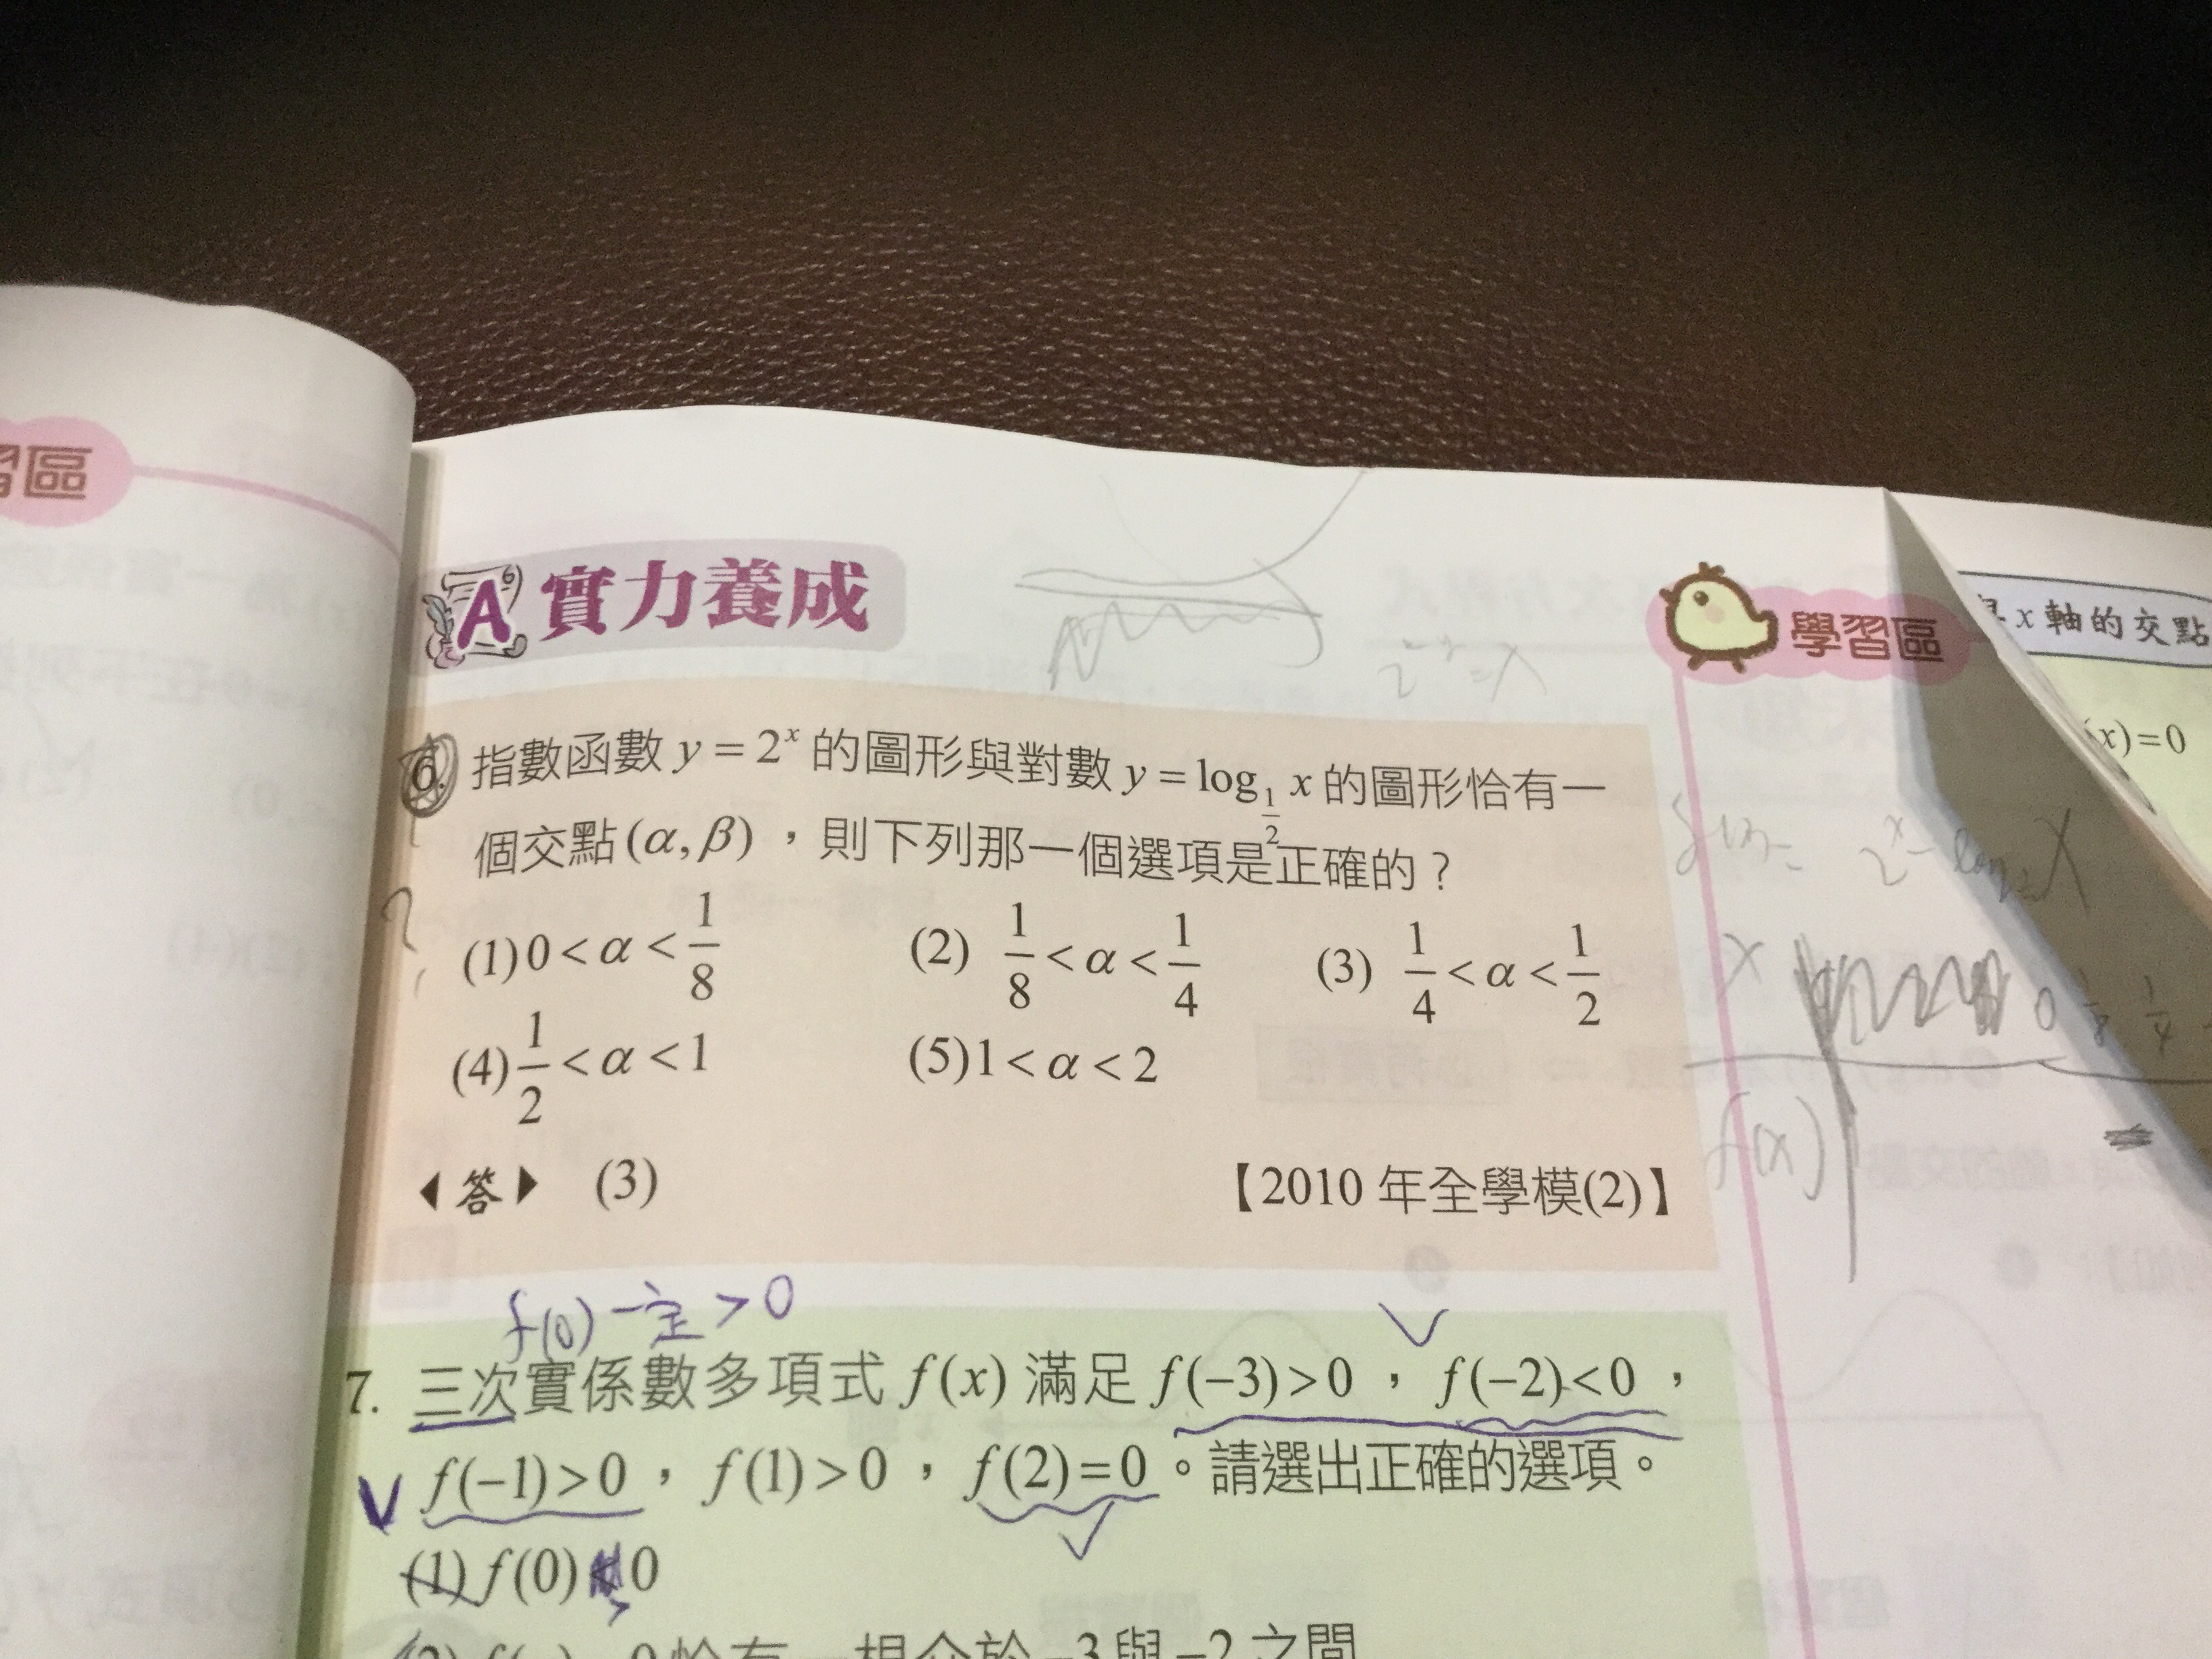 習區
A 實力養成
學習區
x軸的交點
2^-y = x
(x)=0
6. 指數函數 y = 2^x 的圖形與對數 y = log_{1/2} x 的圖形恰有一
個交點(α, β)，則下列那一個選項是正確的？
(1) 0 < α < 1/8 (2) 1/8 < α < 1/4 (3) 1/4 < α < 1/2
(4) 1/2 < α < 1 (5) 1 < α < 2
◀答▶ (3) 【2010 年全學模(2)】
x 0 1/8 1/4
f(x)
f(0)一定 > 0
7. 三次實係數多項式 f(x) 滿足 f(−3)>0，f(−2)<0，
f(−1)>0，f(1)>0，f(2)=0。請選出正確的選項。
(1) f(0) 0
−3與−2之間